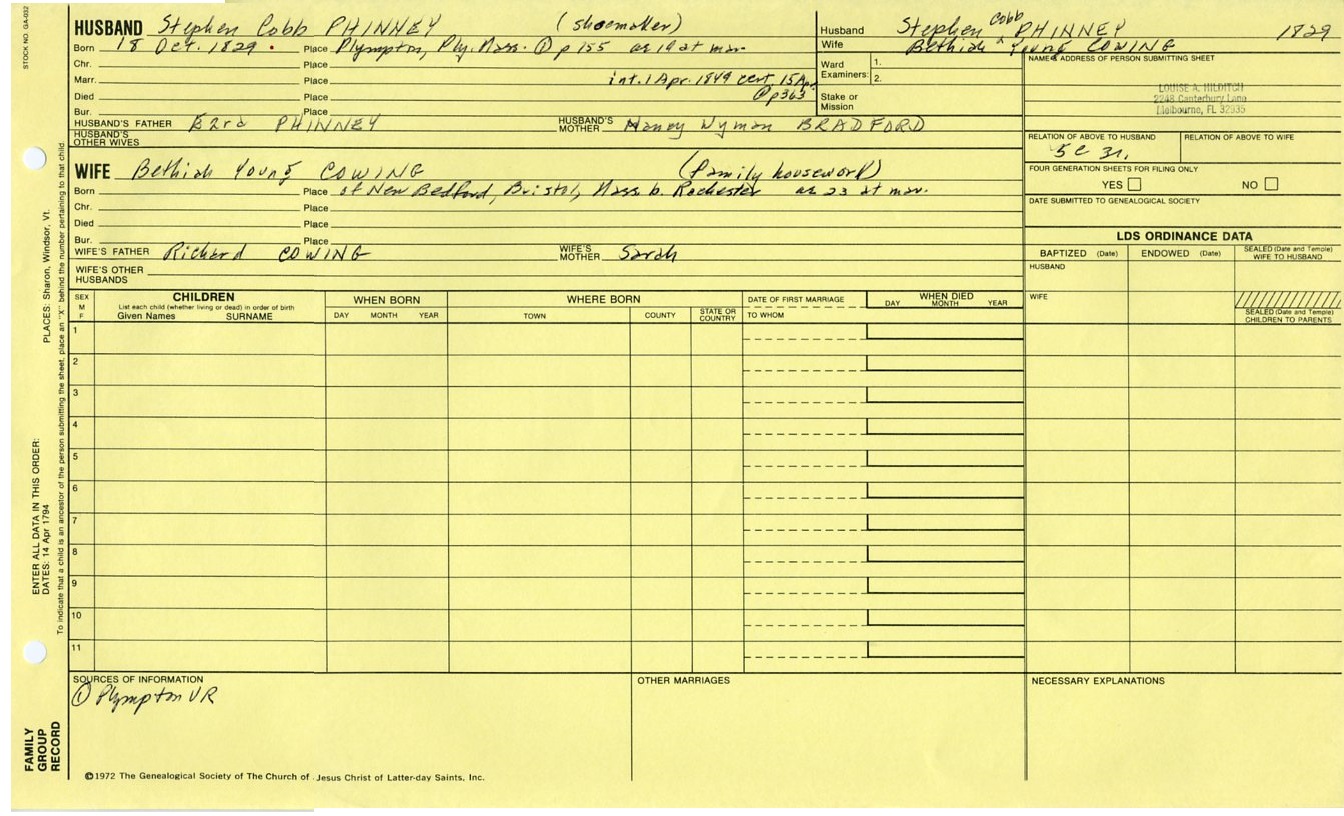 STOCK NO. GA-032
HUSBAND Stephen Cobb PHINNEY (shoemaker)
Born 18 Oct. 1829. Place Plympton, Ply. Mass. ① p155 as 19 at mar.
Chr. Place
Marr. Place int. 1 Apr. 1849 cert. 15 Apr.
Died Place @p363
Bur. Place
HUSBAND'S FATHER Ezra PHINNEY HUSBAND'S MOTHER Nancy Wyman BRADFORD
HUSBAND'S OTHER WIVES
WIFE Bethiah Young COWING (family housework)
Born Place of New Bedford, Bristol, Mass. b. Rochester as 23 at mar.
Chr. Place
Died Place
Bur. Place
WIFE'S FATHER Richard COWING WIFE'S MOTHER Sarah
WIFE'S OTHER HUSBANDS
Husband Stephen Cobb PHINNEY 1829
Wife Bethiah Young COWING
Ward Examiners: 1.
2.
Stake or Mission
NAME & ADDRESS OF PERSON SUBMITTING SHEET
LOUISE A. HILDITCH
2248 Canterbury Lane
Melbourne, FL 32935
RELATION OF ABOVE TO HUSBAND RELATION OF ABOVE TO WIFE
5c 3r.
FOUR GENERATION SHEETS FOR FILING ONLY
YES NO
DATE SUBMITTED TO GENEALOGICAL SOCIETY
LDS ORDINANCE DATA
BAPTIZED (Date) ENDOWED (Date) SEALED (Date and Temple) WIFE TO HUSBAND
HUSBAND
WIFE
SEALED (Date and Temple) CHILDREN TO PARENTS
SEX M F
CHILDREN
List each child (whether living or dead) in order of birth
Given Names SURNAME
WHEN BORN
DAY MONTH YEAR
WHERE BORN
TOWN COUNTY STATE OR COUNTRY
DATE OF FIRST MARRIAGE
TO WHOM
WHEN DIED
DAY MONTH YEAR
1
2
3
4
5
6
7
8
9
10
11
SOURCES OF INFORMATION
① Plympton VR
OTHER MARRIAGES
NECESSARY EXPLANATIONS
©1972 The Genealogical Society of The Church of Jesus Christ of Latter-day Saints, Inc.
FAMILY GROUP RECORD
ENTER ALL DATA IN THIS ORDER:
DATES: 14 Apr 1794
PLACES: Sharon, Windsor, Vt.
To indicate that a child is an ancestor of the person submitting the sheet, place an "X" behind the number pertaining to that child.